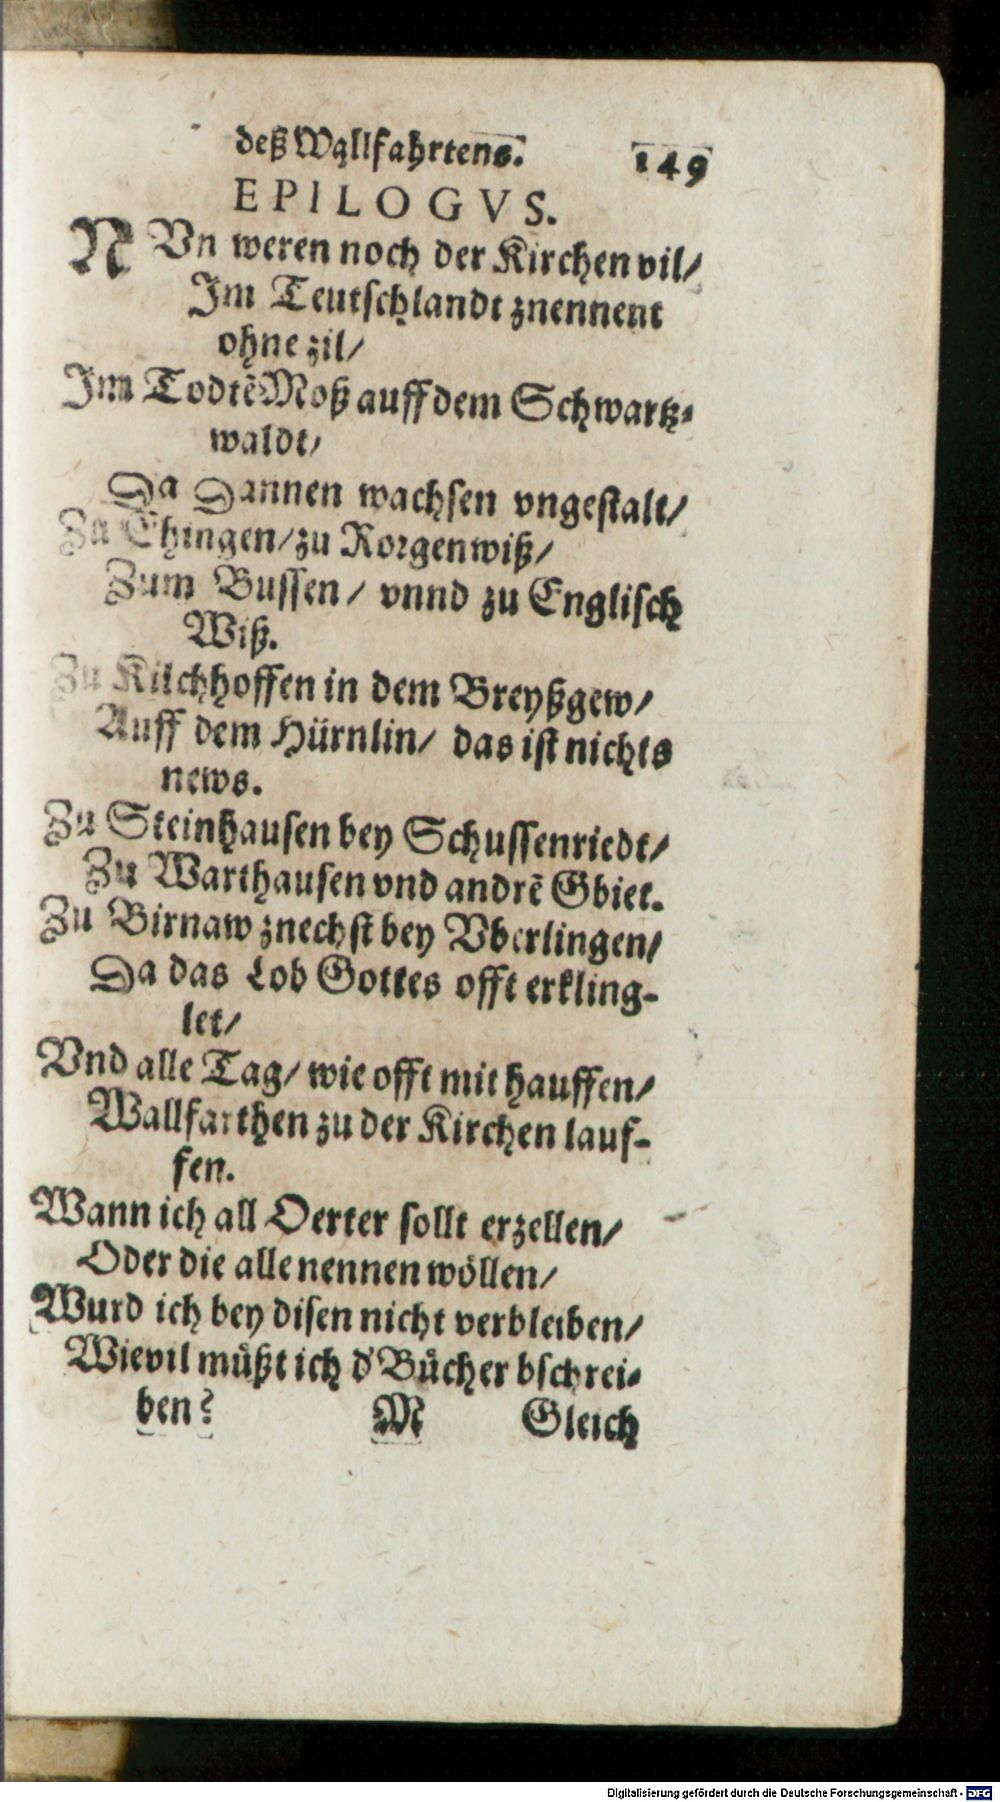 deß Wallfahrtens. 149
EPILOGVS.
NVn weren noch der Kirchen vil/
Im Teutschlandt znennent
ohne zil/
Im Todtẽ Moß auff dem Schwartz-
waldt/
Da Dannen wachsen vngestalt/
Zu Ehingen/ zu Rorgenwiß/
Zum Bussen/ vnnd zu Englisch
Wiß.
Zu Kilchhoffen in dem Breyßgew/
Auff dem Hürnlin/ das ist nichts
news.
Zu Steinhausen bey Schussenriedt/
Zu Warthausen vnd andrẽ Gbiet.
Zu Birnaw znechst bey Vberlingen/
Da das Lob Gottes offt erkling-
let/
Vnd alle Tag/ wie offt mit hauffen/
Wallfarthen zu der Kirchen lauf-
fen.
Wann ich all Oerter sollt erzellen/
Oder die alle nennen wöllen/
Wurd ich bey disen nicht verbleiben/
Wievil müßt ich d'Bücher bschrei-
ben? M Gleich
Digitalisierung gefördert durch die Deutsche Forschungsgemeinschaft - DFG